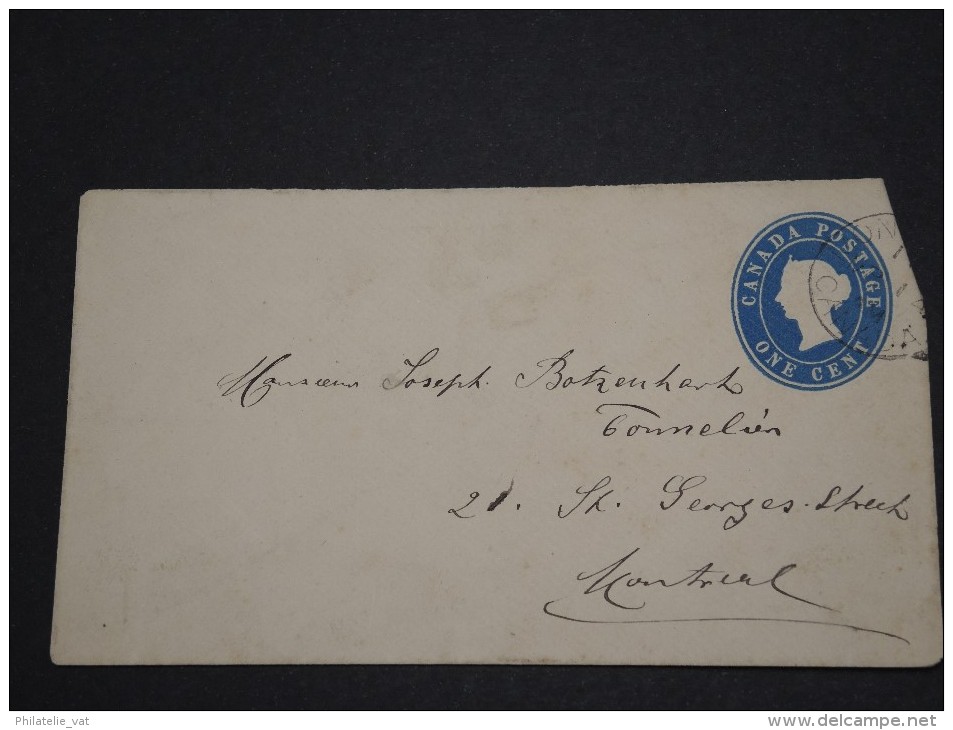 CANADA POSTAGE
ONE CENT
Monsieur Joseph Botzenhart
Tonnelier
21. St. Georges. Street
Montreal
Philatelie_vat
www.delcampe.net